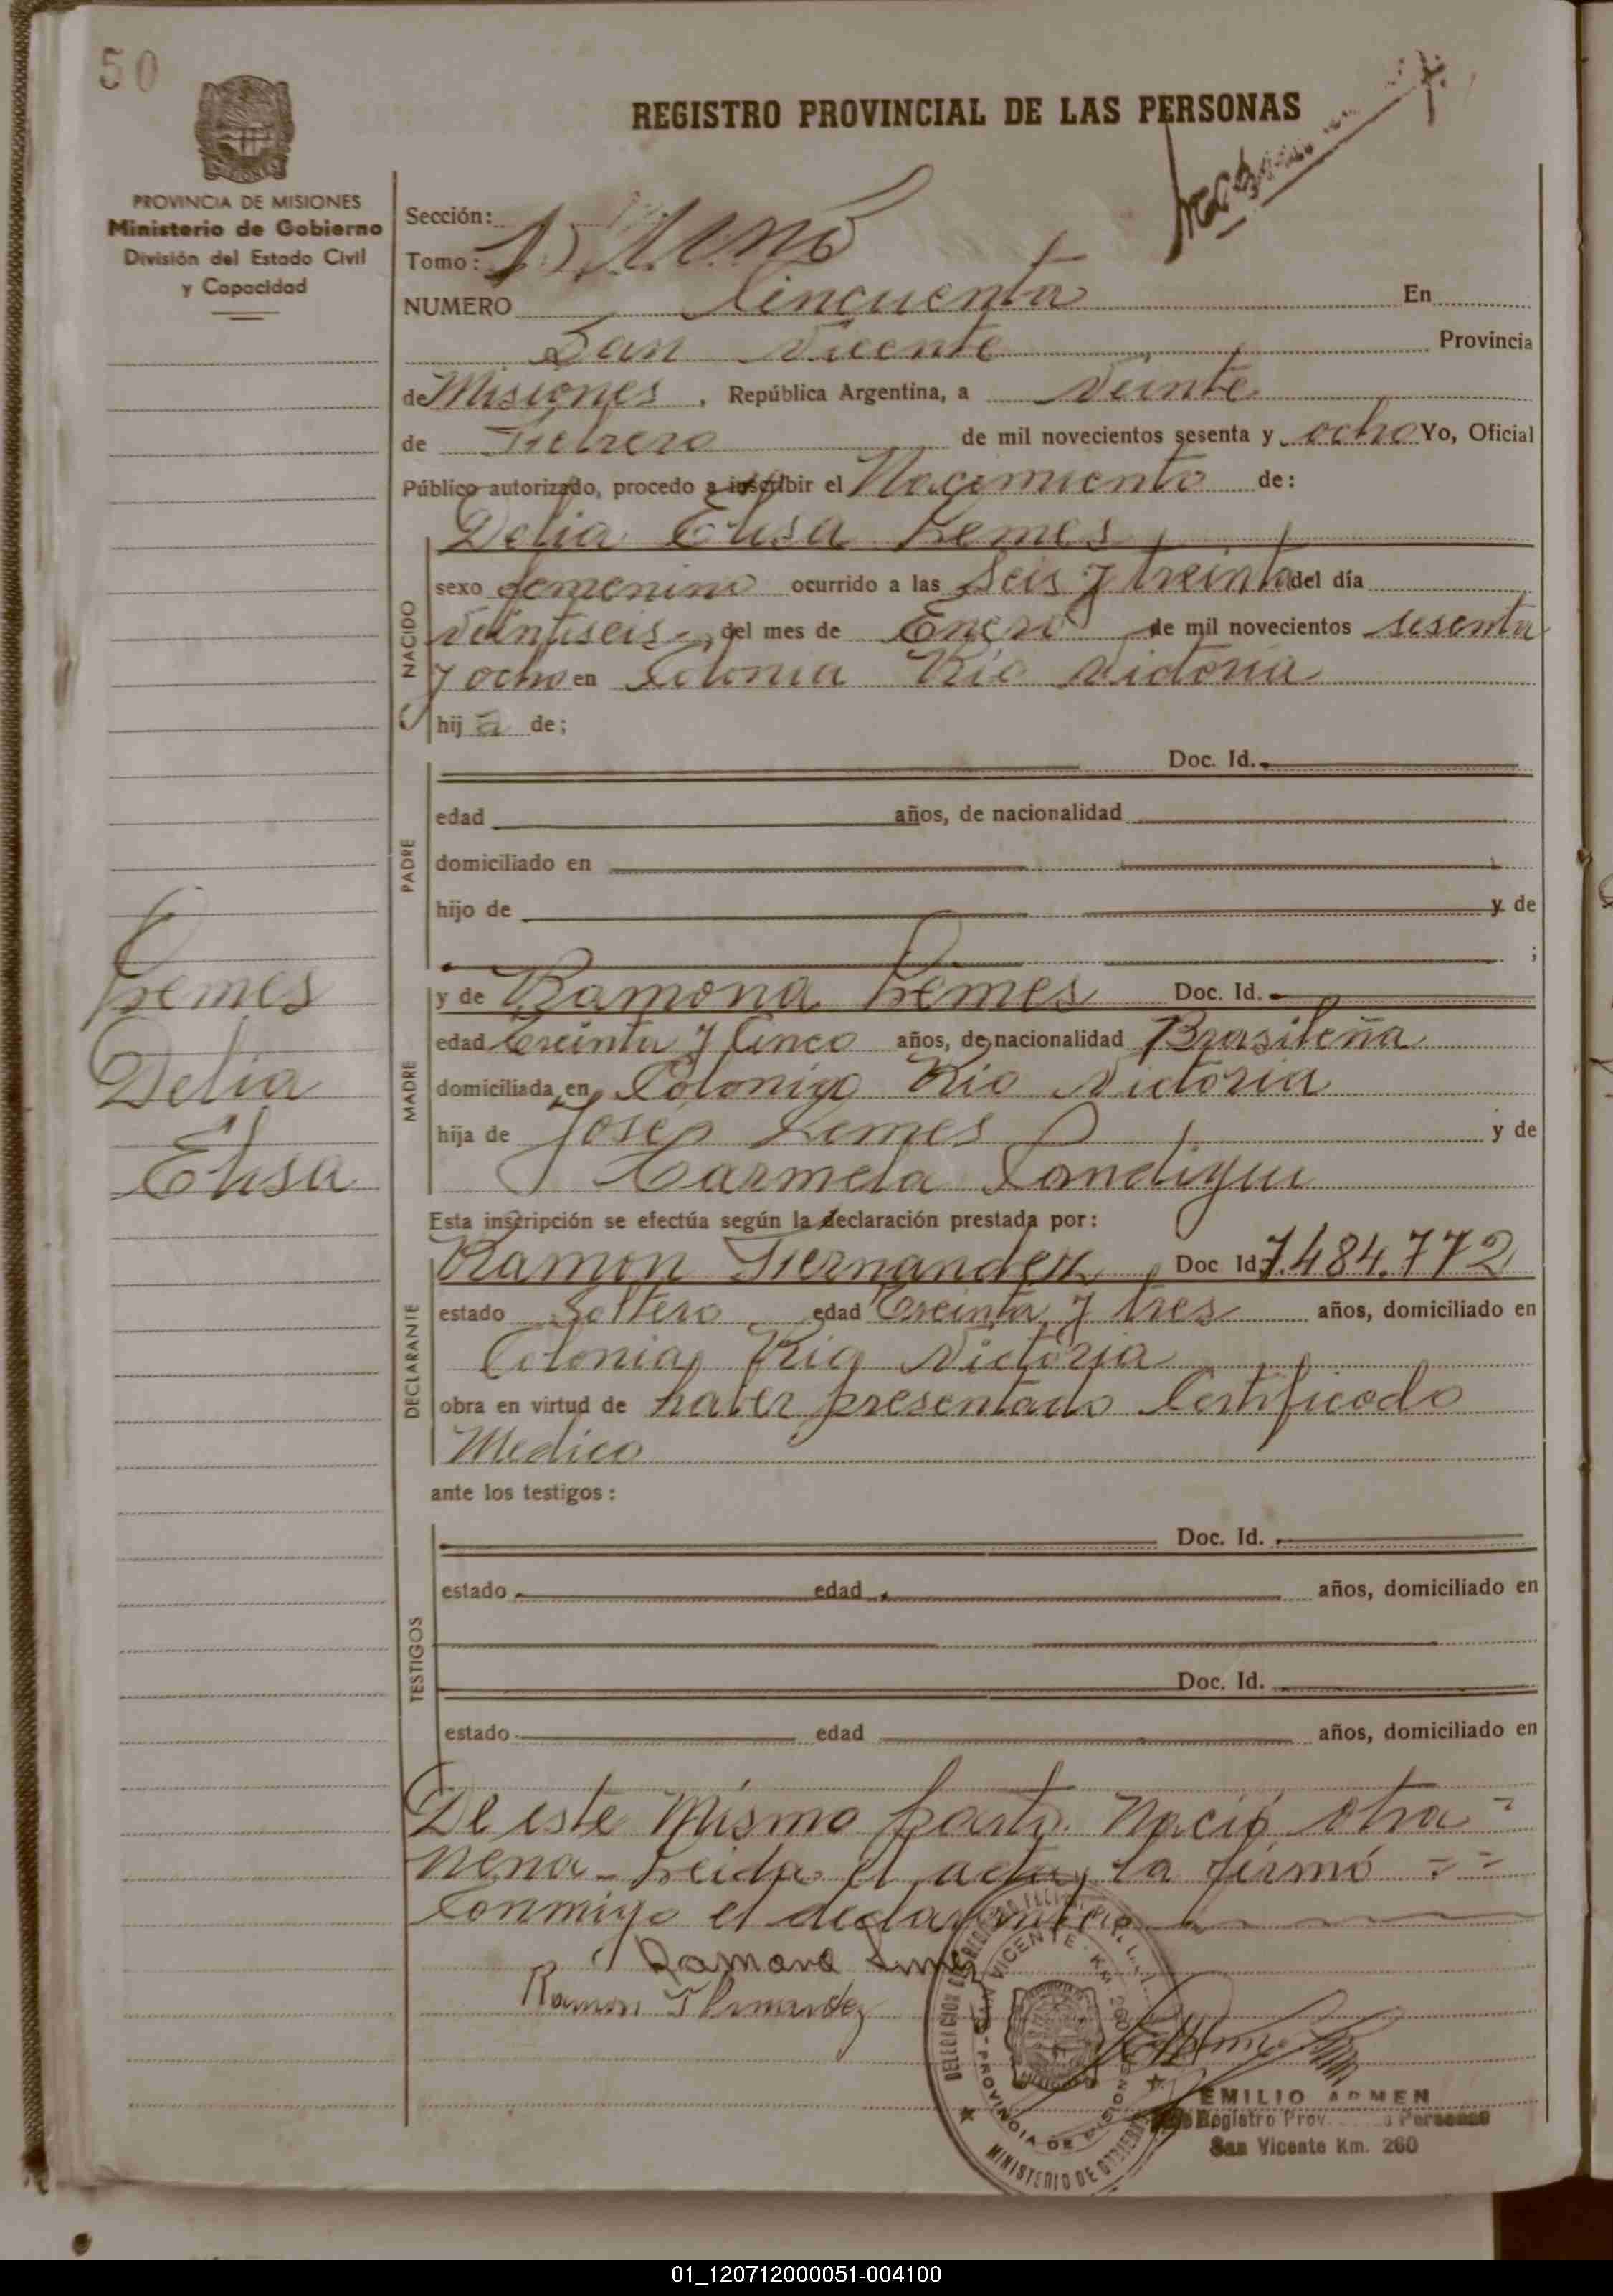 50
REGISTRO PROVINCIAL DE LAS PERSONAS
PROVINCIA DE MISIONES
Ministerio de Gobierno
División del Estado Civil
y Capacidad
Sección:
Tomo:
NUMERO Cincuenta En
San Vicente Provincia
de Misiones, República Argentina, a Veinte
de Febrero de mil novecientos sesenta y ocho Yo, Oficial
Público autorizado, procedo a inscribir el Nacimiento de:
Delia Elisa Lemes
NACIDO
sexo femenino ocurrido a las Seis y treinta del día
Veintiseis, del mes de Enero de mil novecientos sesenta
y ocho en Colonia Río Victoria
hija de;
PADRE
Doc. Id.
edad años, de nacionalidad
domiciliado en
hijo de y de
;
MADRE
y de Ramona Lemes Doc. Id.
edad treinta y Cinco años, de nacionalidad Brasileña
domiciliada en Colonia Río Victoria
hija de José Lemes y de
Carmela
Lemes
Delia
Elisa
Esta inscripción se efectúa según la declaración prestada por:
DECLARANTE
Ramon Fernandez, Doc Id 7.484.772
estado Soltero edad treinta y tres años, domiciliado en
Colonia Río Victoria
obra en virtud de haber presentado Certificado
Medico
ante los testigos:
TESTIGOS
Doc. Id.
estado edad años, domiciliado en
Doc. Id.
estado edad años, domiciliado en
De este mismo parto. Nació otra =
nena - Leida el acta, la firmó = =
Conmigo el declarante
Ramona
Ramon Fernandez
VICENTE - KM. 260
PROVINCIA DE MISIONES
MINISTERIO DE GOBIERNO
EMILIO ARMEN
Registro Prov. Personas
San Vicente Km. 260
01_120712000051-004100